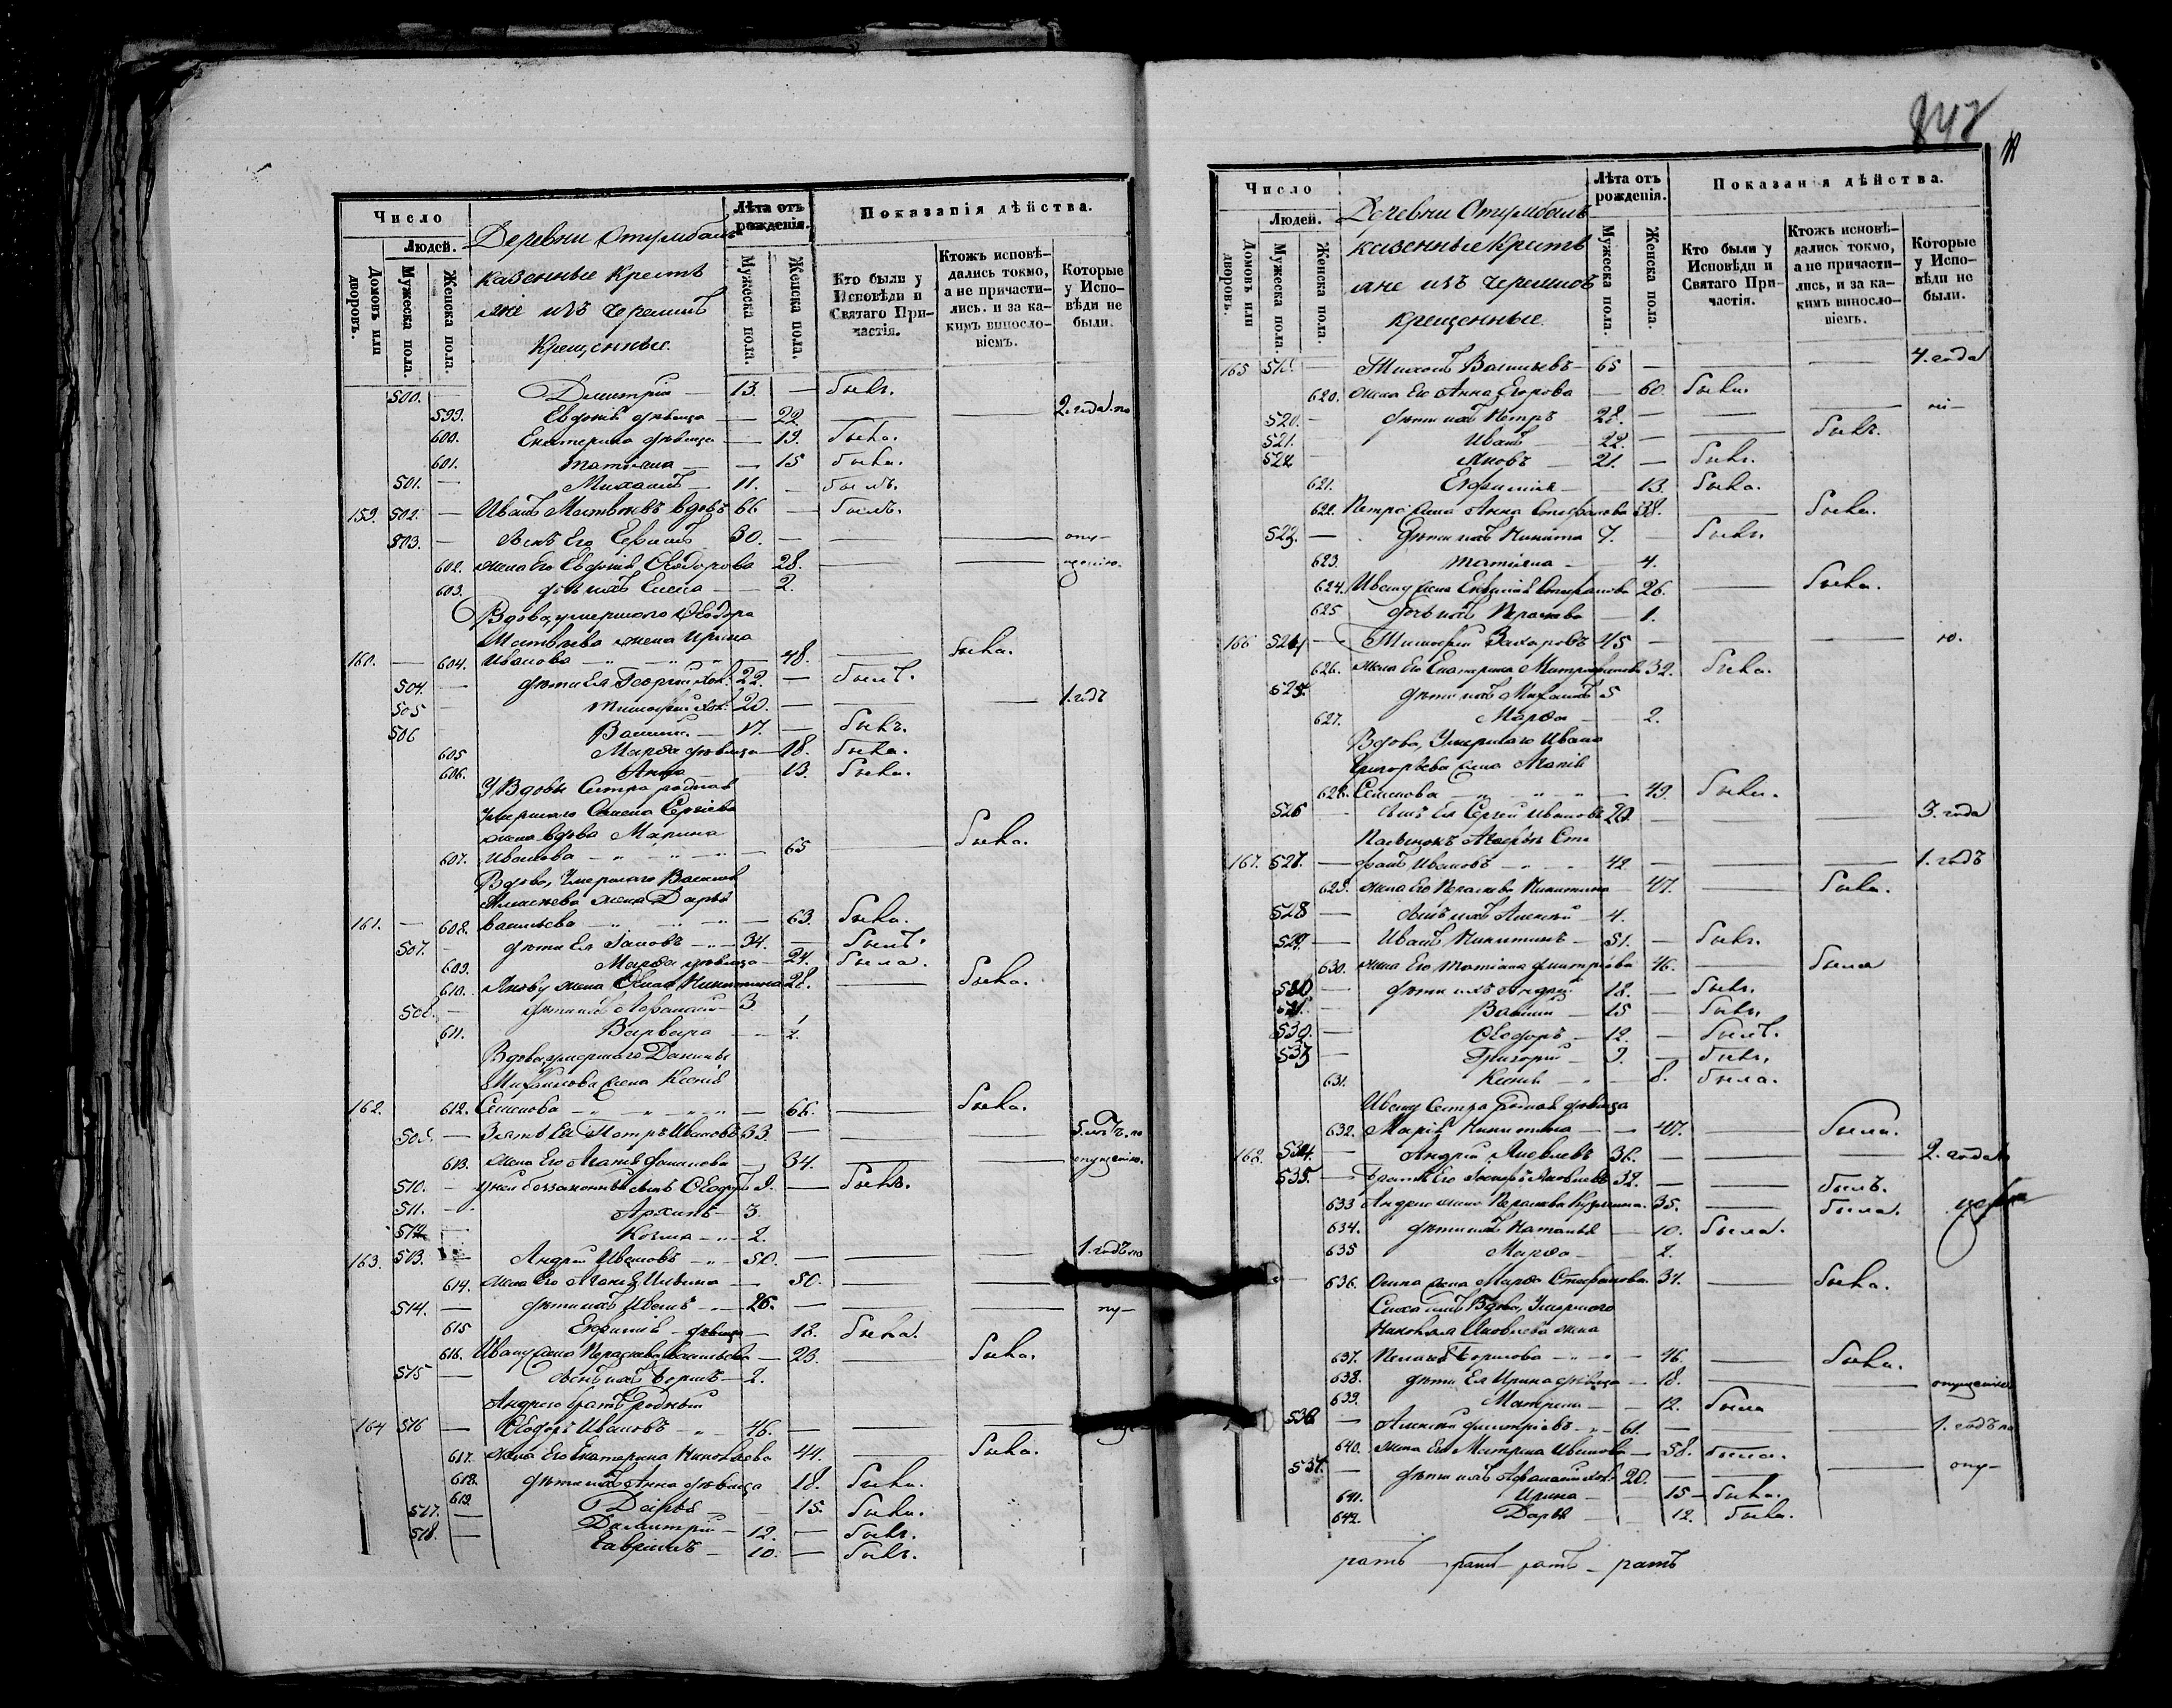 Число
Людей.
Домовъ или дворовъ.
Мужеска пола.
Женска пола.
Деревни
казенные Крестья
не изъ черемисъ
Крещенные.
Лѣта отъ рожденія.
Мужеска пола.
Женска пола.
Показанія дѣйства.
Кто были у Исповѣди и Святаго При-
частія.
Ктожъ исповѣ-
дались токмо,
а не причасти-
лись. и за ка-
кимъ виносло-
віемъ.
Которые
у Испо-
вѣди не
были.
500. — Димитрій — 13. — былъ.
599. Евдокія дѣвица — 22. — — 2. года по
600. Екатерина дѣвица — 19. была.
601. Татіяна — — 15 была.
501. — Михаилъ — 11. — былъ.
159. 502. — Иванъ Матвѣевъ вдовъ 66 — былъ.
503. — Сынъ Его 30. — — — опу-
602. жена Его Евдокія Ѳеодорова 28. — — щенію.
603. дочь ихъ Елена — — 2.
Вдова, умершаго Ѳеодора
Матвѣева жена Ирина
160. — 604. Иванова — — 48. — была.
504. — дѣти Ея Георгій хол. 22. — былъ.
505 — Тимоѳей хол. 20. — — — 1. годъ
506 Василій — 17. — былъ.
605 Марѳа дѣвица — 18. была.
606. Анна — 13. была.
У Вдовы Сестра родная
умершаго Семена Сергіева
жена вдова Марина
607. Иванова — — 65 — была.
Вдова, Умершаго Василія
Алексѣева жена Дарья
161. — 608. Васильева — — 63. была.
507. — дѣти Ея Іаковъ — 34. — былъ.
609. Марѳа дѣвица — 24. была.
610. Якову жена Никитина 28. — была.
508. — дѣти ихъ Аѳанасій — 3
611. Варвара — — 1.
Вдова, умершаго Даніила
Михайлова жена Ксенія
162. 612. Семенова — — 66. — была.
509. — Зять Ея Петръ Ивановъ 33. — — — 5. лѣтъ. по
613. жена Его Агаѳія — 34. — — опущенію.
510. — у ней беззаконный сынъ Ѳеодоръ 9. — былъ.
511. — Архипъ — 3.
512 — Козма — 2.
163. 513. — Андрей Ивановъ — 50. — — — 1. годъ по
614. жена Его Агаѳія Ильина — 50. — —
514. — дѣти ихъ Иванъ — 26. — — — пу-
615 Евфимія дѣвица — 18. была.
616. Ивану жена Параскева Васильева — 23. — была.
515 — Сынъ ихъ Борисъ — 2.
Андрею братъ родный
164 516 — Ѳеодоръ Ивановъ — 46. — — —
617. жена Его Екатерина Николаева 44. — была.
618. дѣти ихъ Анна дѣвица 18. была.
619. Дарья — 15. была.
517. — Димитрій — 12. — былъ.
518. — Гавріилъ — 10. — былъ.
847
Число
Людей.
Домовъ или дворовъ.
Мужеска пола.
Женска пола.
Деревни
казенные Кресть
яне изъ черемисъ
крещенные.
Лѣта отъ рожденія.
Мужеска пола.
Женска пола.
Показанія дѣйства.
Кто были у Исповѣди и Святаго При-
частія.
Ктожъ исповѣ-
дались токмо,
а не причасти-
лись, и за ка-
кимъ виносло-
віемъ.
Которые
у Испо-
вѣди не
были.
165 519. — Тихонъ Васильевъ — 65 — — — 4. года
620. жена Его Анна Егорова — 60. была.
520. — дѣти ихъ Петръ — 28. — — — ні-
521. — Иванъ — 22. — — былъ.
522 — Яковъ — 21. — былъ.
621. Евфимія — 13. была.
622. Петра жена Анна Стефанова 38. — была.
523. — дѣти ихъ Никита 7. — былъ
623. Татіяна — 4.
624. Ивану жена Евфимія Стефанова 26. — была.
625 дочь ихъ Параскева — 1.
166 524 — Тимоѳей Захаровъ 45 — — — ю.
626. жена Его Екатерина Митрофанова 39. была.
525. дѣти ихъ Михаилъ 5
627. Марѳа — 2.
Вдова, Умершаго Ивана
Григорьева жена Агаѳія
628. Семенова — — 49. была.
526 — сынъ Ея Сергій Ивановъ 20 — — — 3. года
167. 527. — Стефанъ Ивановъ — 42 — — — 1. годъ
629. жена Его Параскева Никитина — 47. — была.
528 — сынъ ихъ Алексѣй — 4.
529. — Иванъ Никитинъ — 51. — былъ.
630. жена Его Татіана Димитріева 46. — была
530 — дѣти ихъ Андрей 18. — былъ.
531. — Василій — 15 — былъ.
532. — Ѳеодоръ — 12. — былъ.
533 — Григорій — 9. — былъ.
631. Ксенія — — 8. была.
Ивану Сестра родная дѣвица
632. Марія Никитина — — 47. — была.
168. 534. — Андрей Яковлевъ 36. — — — 2. года
535. — братъ Его Яковлевъ 32. — — былъ.
633 Андрею жена Параскева Кузмина. 35. — была.
634. дѣти ихъ Наталья — 10. была.
635 Марѳа — 2.
636. жена Марѳа Стефанова 31. — была.
Сноха имъ Вдова, Умершаго
Николая Яковлева жена
637. Пелагія Борисова — — 46. — была.
638. дѣти Ея Ирина дѣвица — 18. — — опущенію
639. Матрена — — 12. была
536. — Алексѣй Димитріевъ — 61. — — — 1. годъ по
640. жена Его Матрена Иванова — 58. была.
537. — дѣти ихъ Аѳанасій хол. 20. — — — опу-
641. Ирина — — 15 — была.
642. Дарья — 12. была.